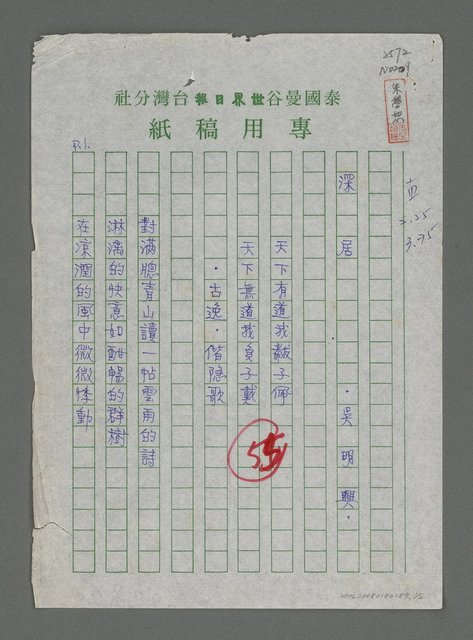 2572
N0209
泰國曼谷世界日報台灣分社
專用稿紙
P.1.
直
3.25
3.75
深居
·吳明興·
天下有道我黻子佩
天下無道我負子戴
·古逸·偕隱歌
55
對滿牕青山讀一帖雲雨的詩
淋漓的快意如酣暢的群樹
在涼潤的風中微微悸動